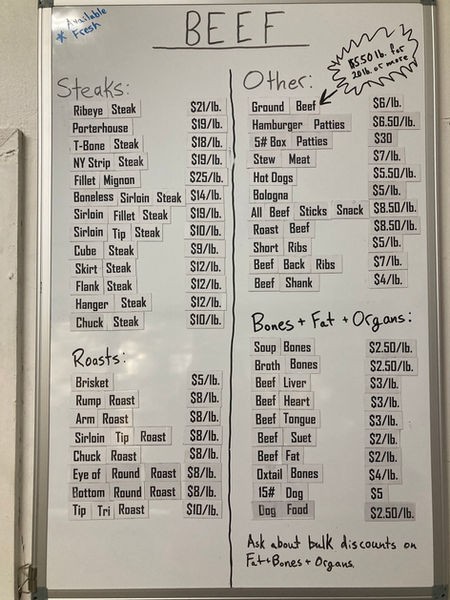 BEEF
* Available
Fresh
Steaks:
Ribeye Steak $21/lb.
Porterhouse $19/lb.
T-Bone Steak $18/lb.
NY Strip Steak $19/lb.
Fillet Mignon $25/lb.
Boneless Sirloin Steak $14/lb.
Sirloin Fillet Steak $19/lb.
Sirloin Tip Steak $10/lb.
Cube Steak $9/lb.
Skirt Steak $12/lb.
Flank Steak $12/lb.
Hanger Steak $12/lb.
Chuck Steak $10/lb.
Roasts:
Brisket $5/lb.
Rump Roast $8/lb.
Arm Roast $8/lb.
Sirloin Tip Roast $8/lb.
Chuck Roast $8/lb.
Eye of Round Roast $8/lb.
Bottom Round Roast $8/lb.
Tip Tri Roast $10/lb.
Other:
$5.50 lb. for
20 lb. or more
Ground Beef $6/lb.
Hamburger Patties $6.50/lb.
5# Box Patties $30
Stew Meat $7/lb.
Hot Dogs $5.50/lb.
Bologna $5/lb.
All Beef Sticks Snack $8.50/lb.
Roast Beef $8.50/lb.
Short Ribs $5/lb.
Beef Back Ribs $7/lb.
Beef Shank $4/lb.
Bones + Fat + Organs:
Soup Bones $2.50/lb.
Broth Bones $2.50/lb.
Beef Liver $3/lb.
Beef Heart $3/lb.
Beef Tongue $3/lb.
Beef Suet $2/lb.
Beef Fat $2/lb.
Oxtail Bones $4/lb.
15# Dog $5
Dog Food $2.50/lb.
Ask about bulk discounts on
Fat+Bones+Organs.